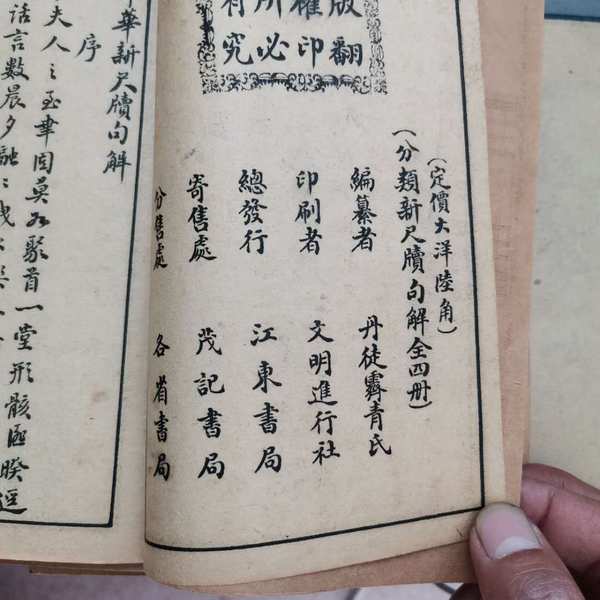 版權所有
翻印必究
(定價大洋陸角)
(分類新尺牘句解全四册)
編纂者 丹徒霽青氏
印刷者 文明進行社
總發行 江東書局
寄售處 茂記書局
分售處 各省書局
華新尺牘句解
序
夫人之至 聚首一堂形骸
話言數晨夕融